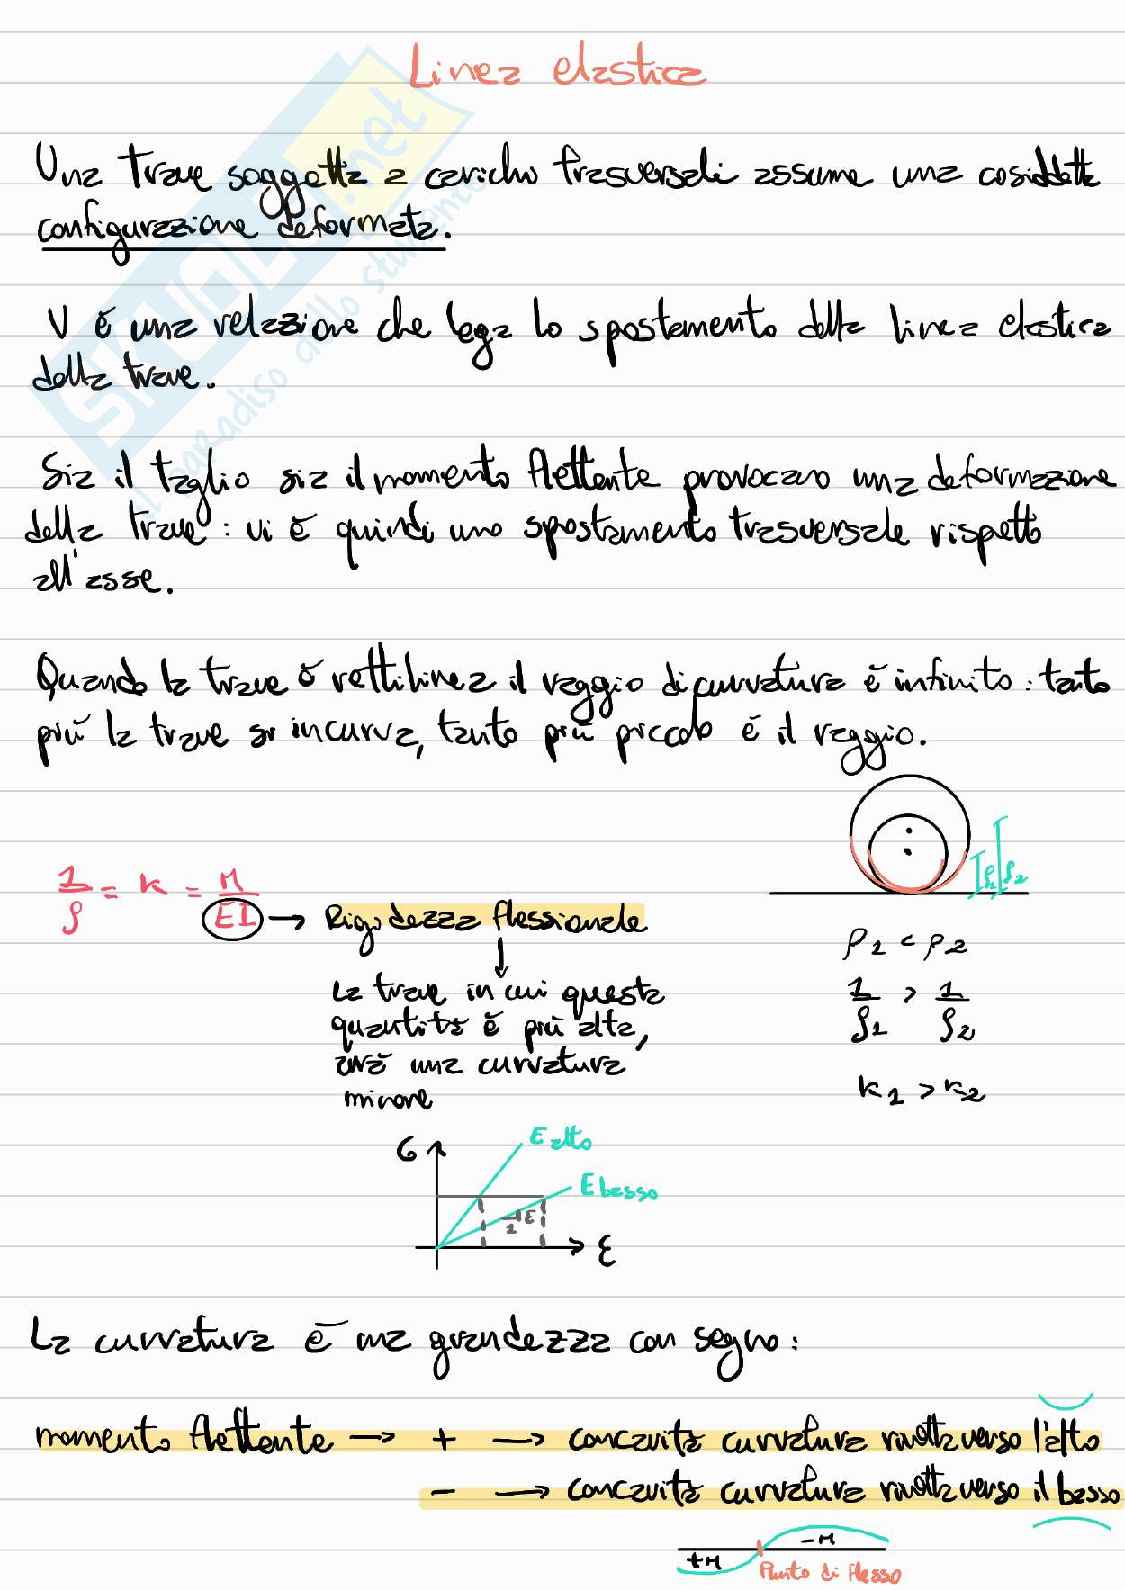 Linea elastica
Una trave soggetta a carichi trasversali assume una cosiddetta
configurazione deformata.
V è una relazione che lega lo spostamento della linea elastica
della trave.
Sia il taglio sia il momento flettente provocano una deformazione
della trave: vi è quindi uno spostamento trasversale rispetto
all'asse.
Quando la trave è rettilinea il raggio di curvatura è infinito: tanto
più la trave si incurva, tanto più piccolo è il raggio.
1/ρ = k = M/EI → Rigidezza flessionale
La trave in cui questa
quantità è più alta,
avrà una curvatura
minore
ρ1 ρ2
ρ1 < ρ2
1/ρ1 > 1/ρ2
k1 > k2
σ E alto
E basso
ε
La curvatura è una grandezza con segno:
momento flettente → + → concavità curvatura rivolta verso l'alto
- → concavità curvatura rivolta verso il basso
+M -M
Punto di flesso
SKUOLA.net
il paradiso dello studente